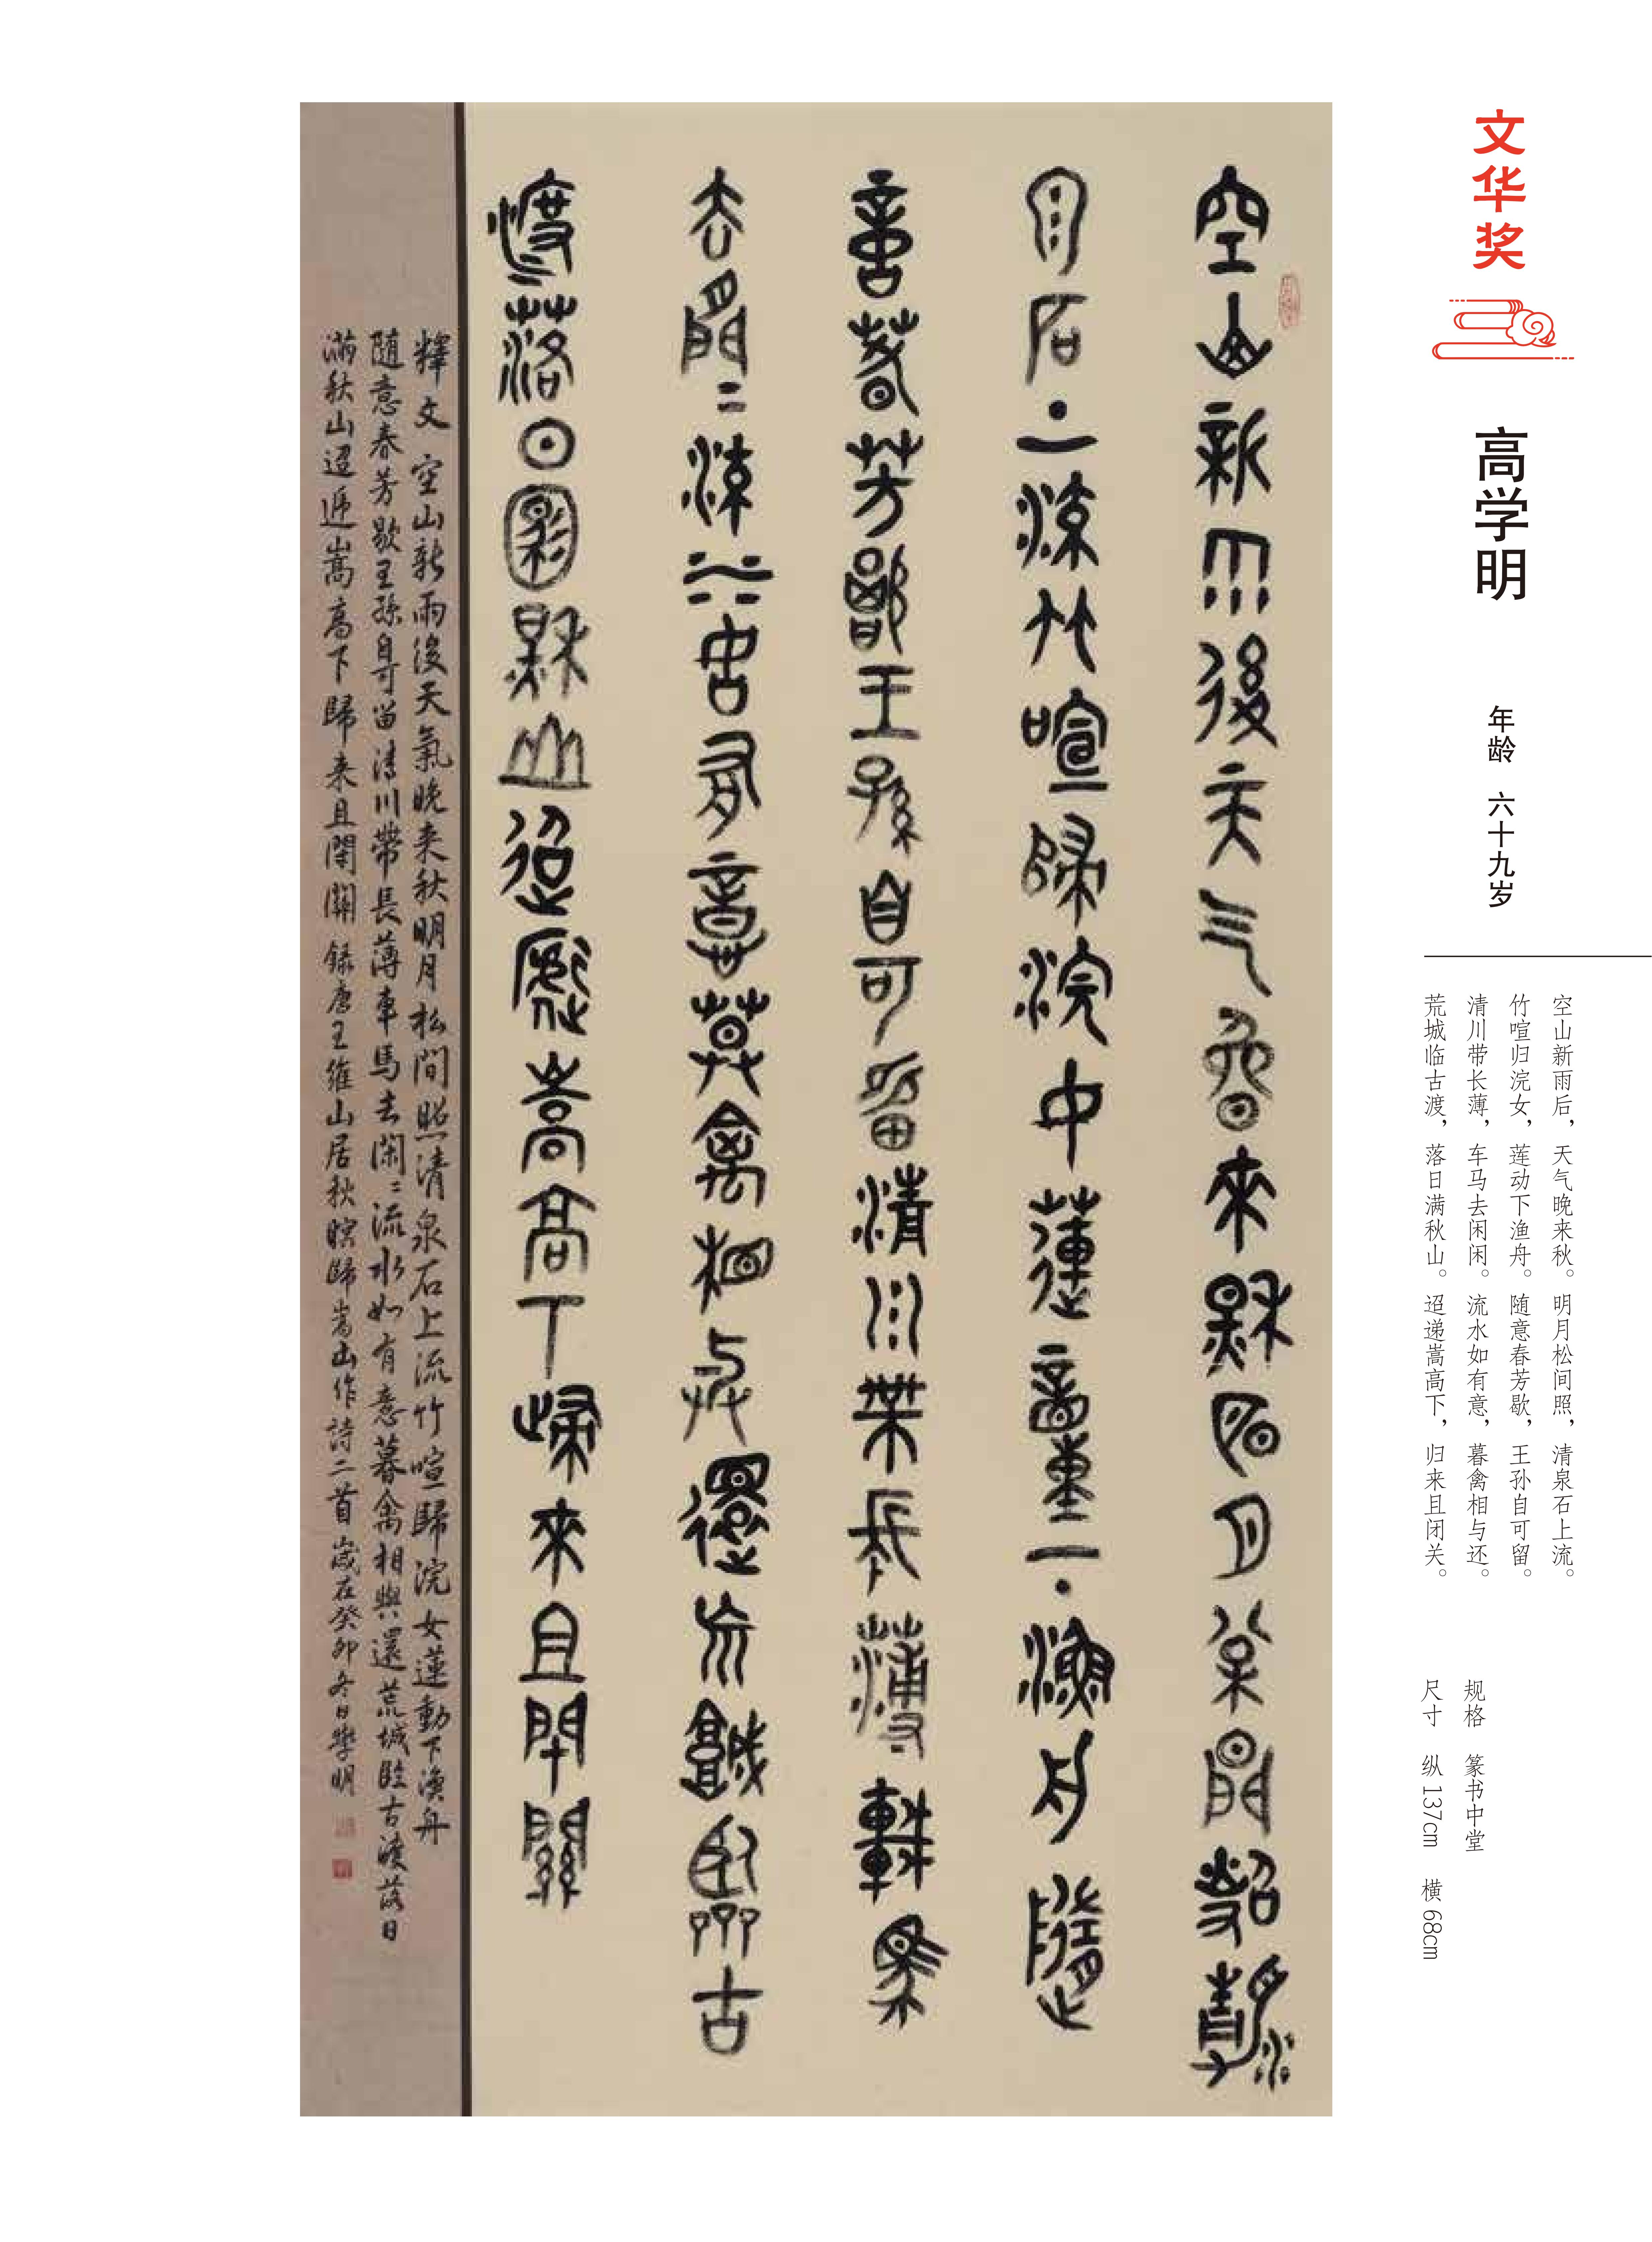 文华奖
高学明
年龄 六十九岁
空山新雨后，天气晚来秋。明月松间照，清泉石上流。
竹喧归浣女，莲动下渔舟。随意春芳歇，王孙自可留。
清川带长薄，车马去闲闲。流水如有意，暮禽相与还。
荒城临古渡，落日满秋山。迢递嵩高下，归来且闭关。
规格 篆书中堂
尺寸 纵137cm 横68cm
空山新雨後天气晚來秋明月松間照清
泉石上流竹喧歸浣女蓮動下漁舟隨
意春芳歇王孫自可留清川帶長薄車馬
去閒〻流水如有意暮禽相與還荒城臨古
渡落日滿秋山迢遞嵩高下歸來且閉關
釋文 空山新雨後天氣晚来秋明月松間照清泉石上流竹喧歸浣女蓮動下漁舟
随意春芳歇王孫自可留清川帶長薄車馬去闲〻流水如有意暮禽相與還荒城臨古渡落日
滿秋山迢遞嵩高下歸来且閉關 錄唐王維山居秋暝歸嵩山作詩二首 歲在癸卯冬日學明